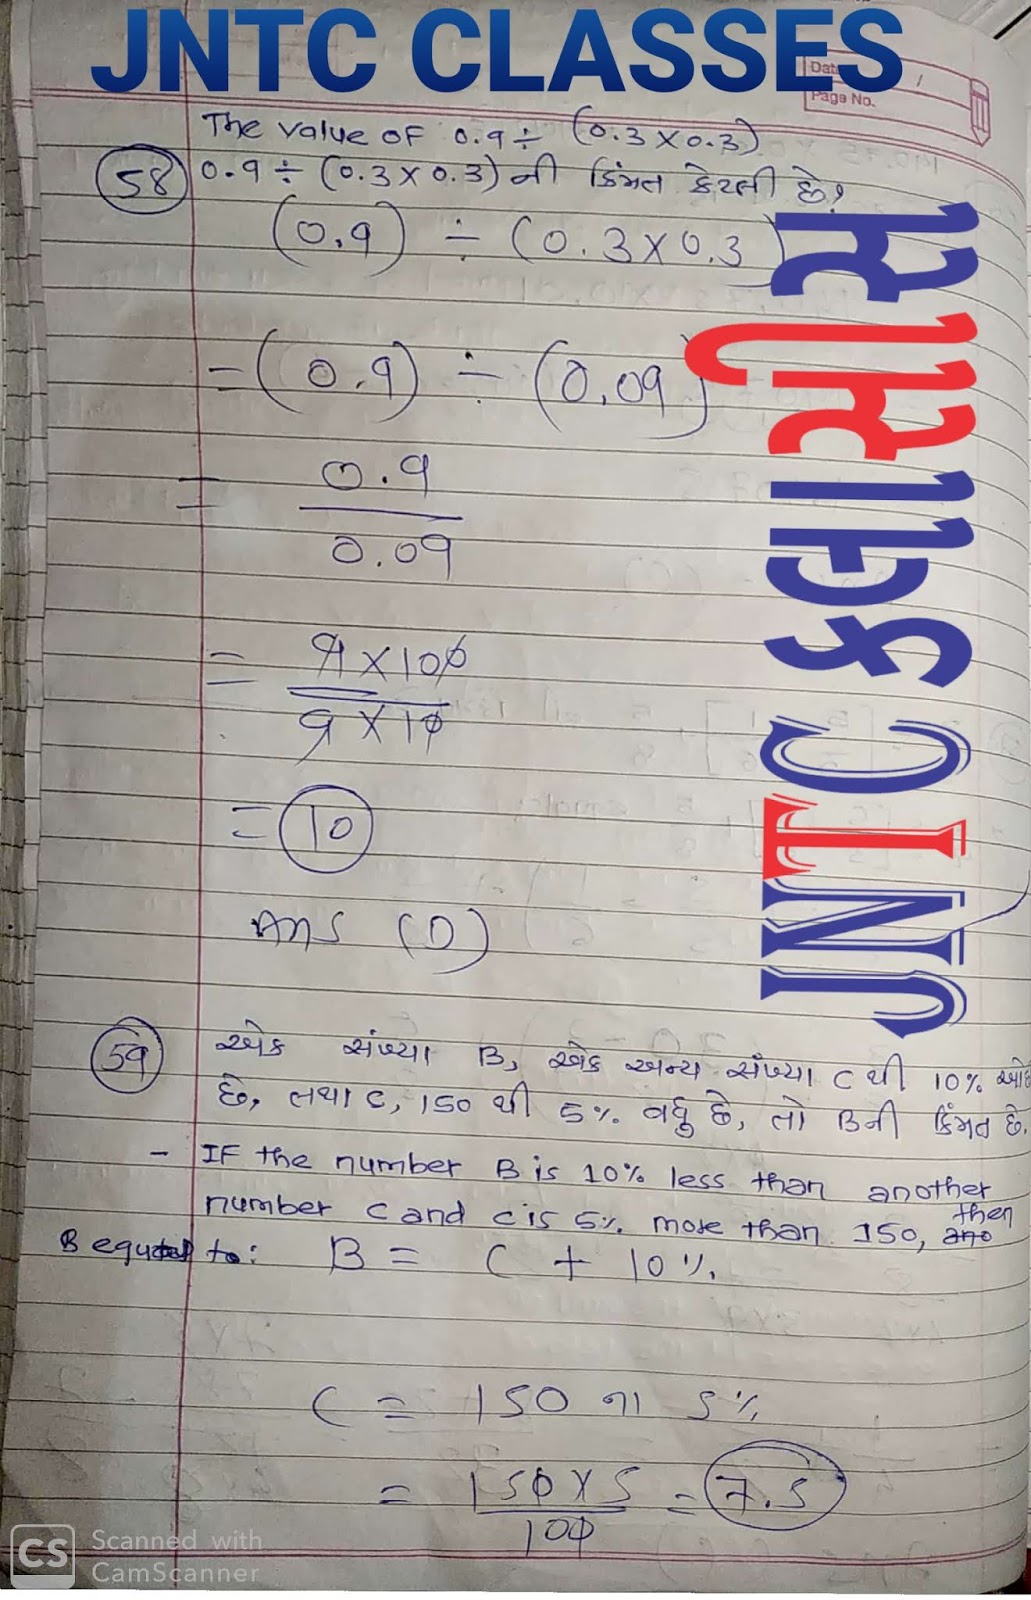 JNTC CLASSES
Page No.
The value of 0.9 ÷ (0.3 x 0.3)
58 0.9 ÷ (0.3 x 0.3) ની કિંમત કેટલી છે?
(0.9) ÷ (0.3 x 0.3)
= (0.9) ÷ (0.09)
= 0.9
0.09
= 9 x 100
9 x 10
= 10
Ans (D)
JNTC ક્લાસીસ
59 એક સંખ્યા B, એક અન્ય સંખ્યા C થી 10%
છે, તથા C, 150 થી 5% વધુ છે, તો B ની કિંમત છે.
- IF the number B is 10% less than another
number C and C is 5% more than 150, then
B equal to: B = C + 10%
C = 150 ના 5%
= 150 x 5 = 7.5
100
CS Scanned with
CamScanner